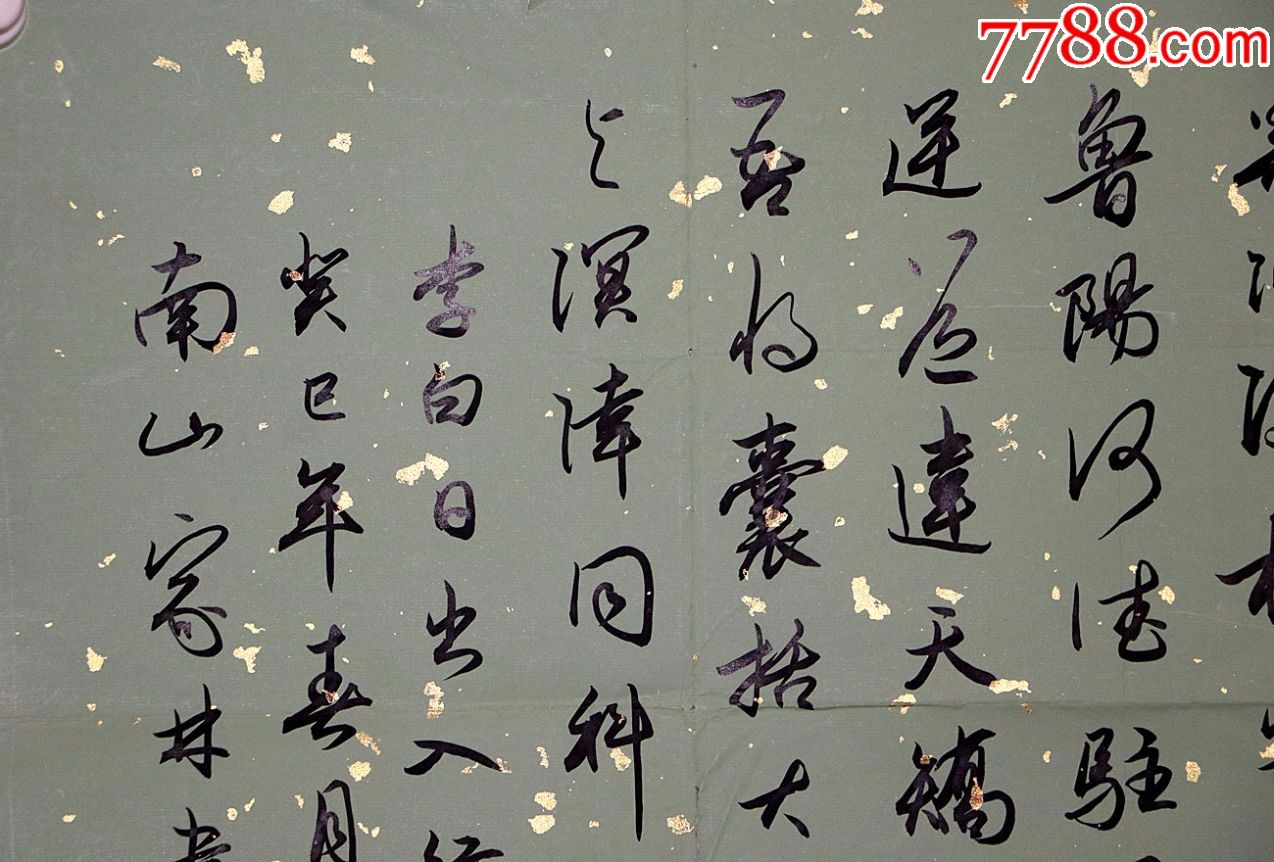 7788.com
魯陽何德駐
逆道違天矯
吾将囊括大
与溟涬同科
李白日出入行
癸巳年春月
南山家林书